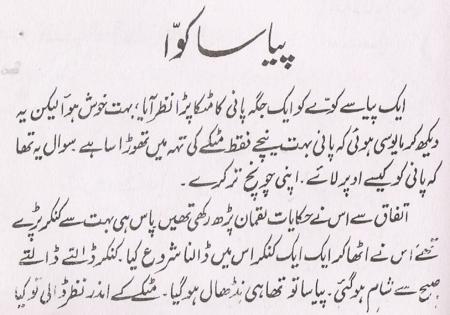 پیاسا کوّا
ایک پیاسے کوّے کو ایک جگہ پانی کا مٹکا پڑا نظر آیا، بہت خوش ہوا لیکن یہ
دیکھ کر مایوسی ہوئی کہ پانی بہت نیچے فقط مٹکے کی تہہ میں تھوڑا سا ہے۔ سوال یہ تھا
کہ پانی کو کیسے اوپر لائے۔ اپنی چونچ تر کرے۔
اتفاق سے اس نے حکایات لقمان پڑھ رکھی تھیں پاس ہی بہت سے کنکر پڑے
تھے اس نے اٹھا کر ایک ایک کنکر اس میں ڈالنا شروع کیا۔ کنکر ڈالتے ڈالتے
صبح سے شام ہو گئی۔ پیاسا تو تھا ہی نڈھال ہو گیا۔ مٹکے کے اندر نظر ڈالی تو کیا